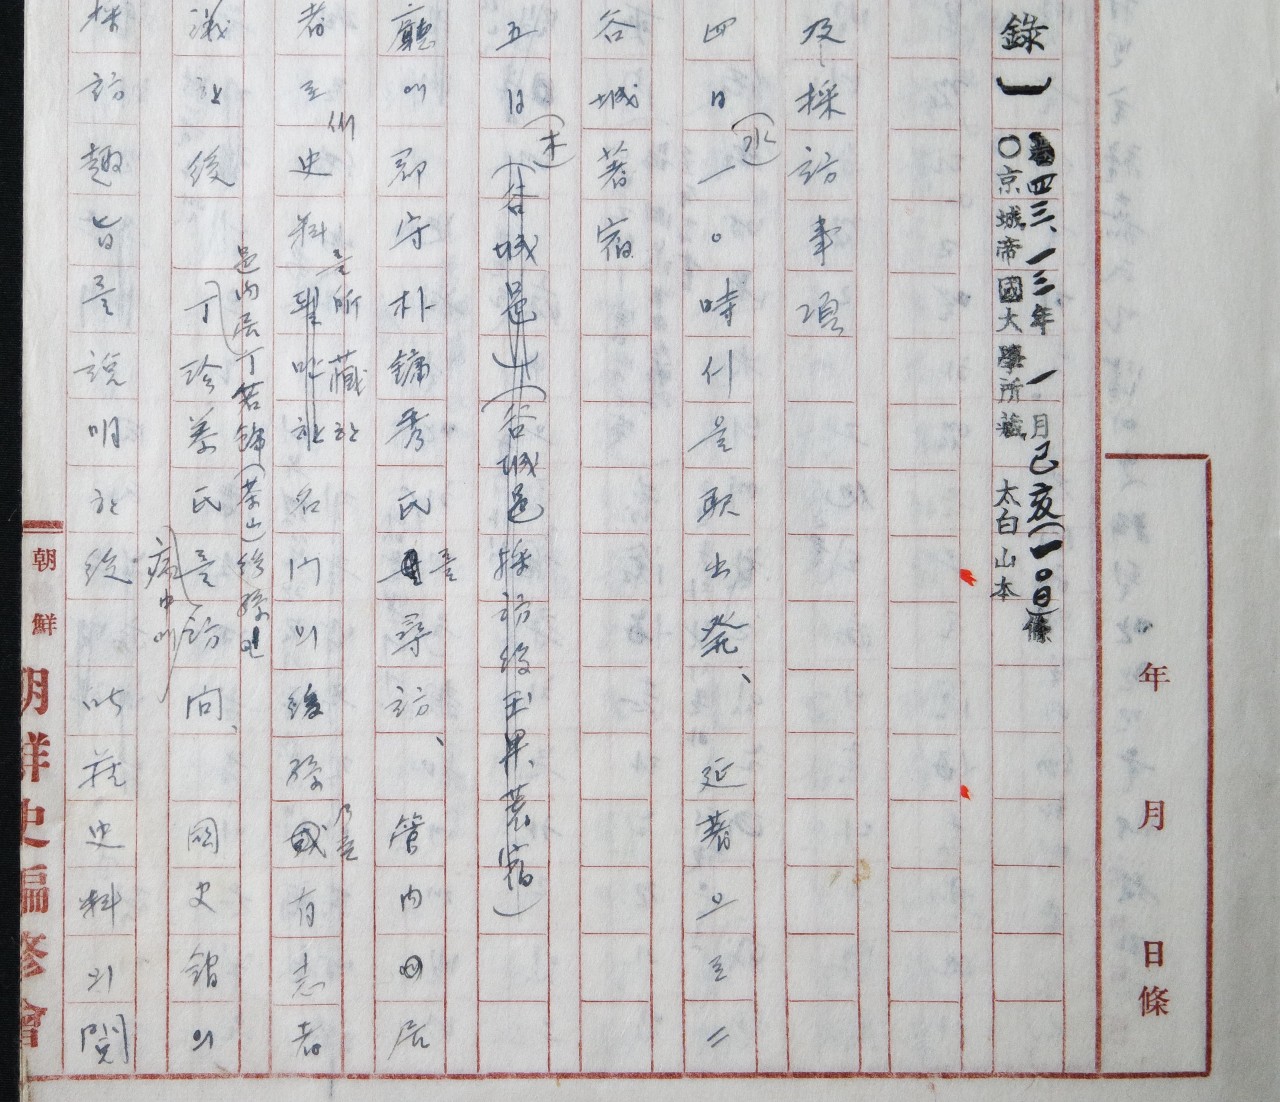 年 月 日條
四三、一三年 一月己亥(一〇日)條
錄】 〇京城帝國大學所藏 太白山本
及採訪事項
四日(水) 一〇時 出發、延着으로
谷城着宿
五日(木) (谷城邑)(谷城邑採訪後玉果着宿)
廳에郡守朴鏞秀氏를尋訪、管內 居
者로 史料를所藏한名門의後孫 乃至 有志者
議한後 丁珍 氏를訪問、國史館의
邑內居丁若鏞(茶山)後孫인
病中에
採訪趣旨를說明한後 所藏史料의閱
朝鮮
朝鮮史編修會